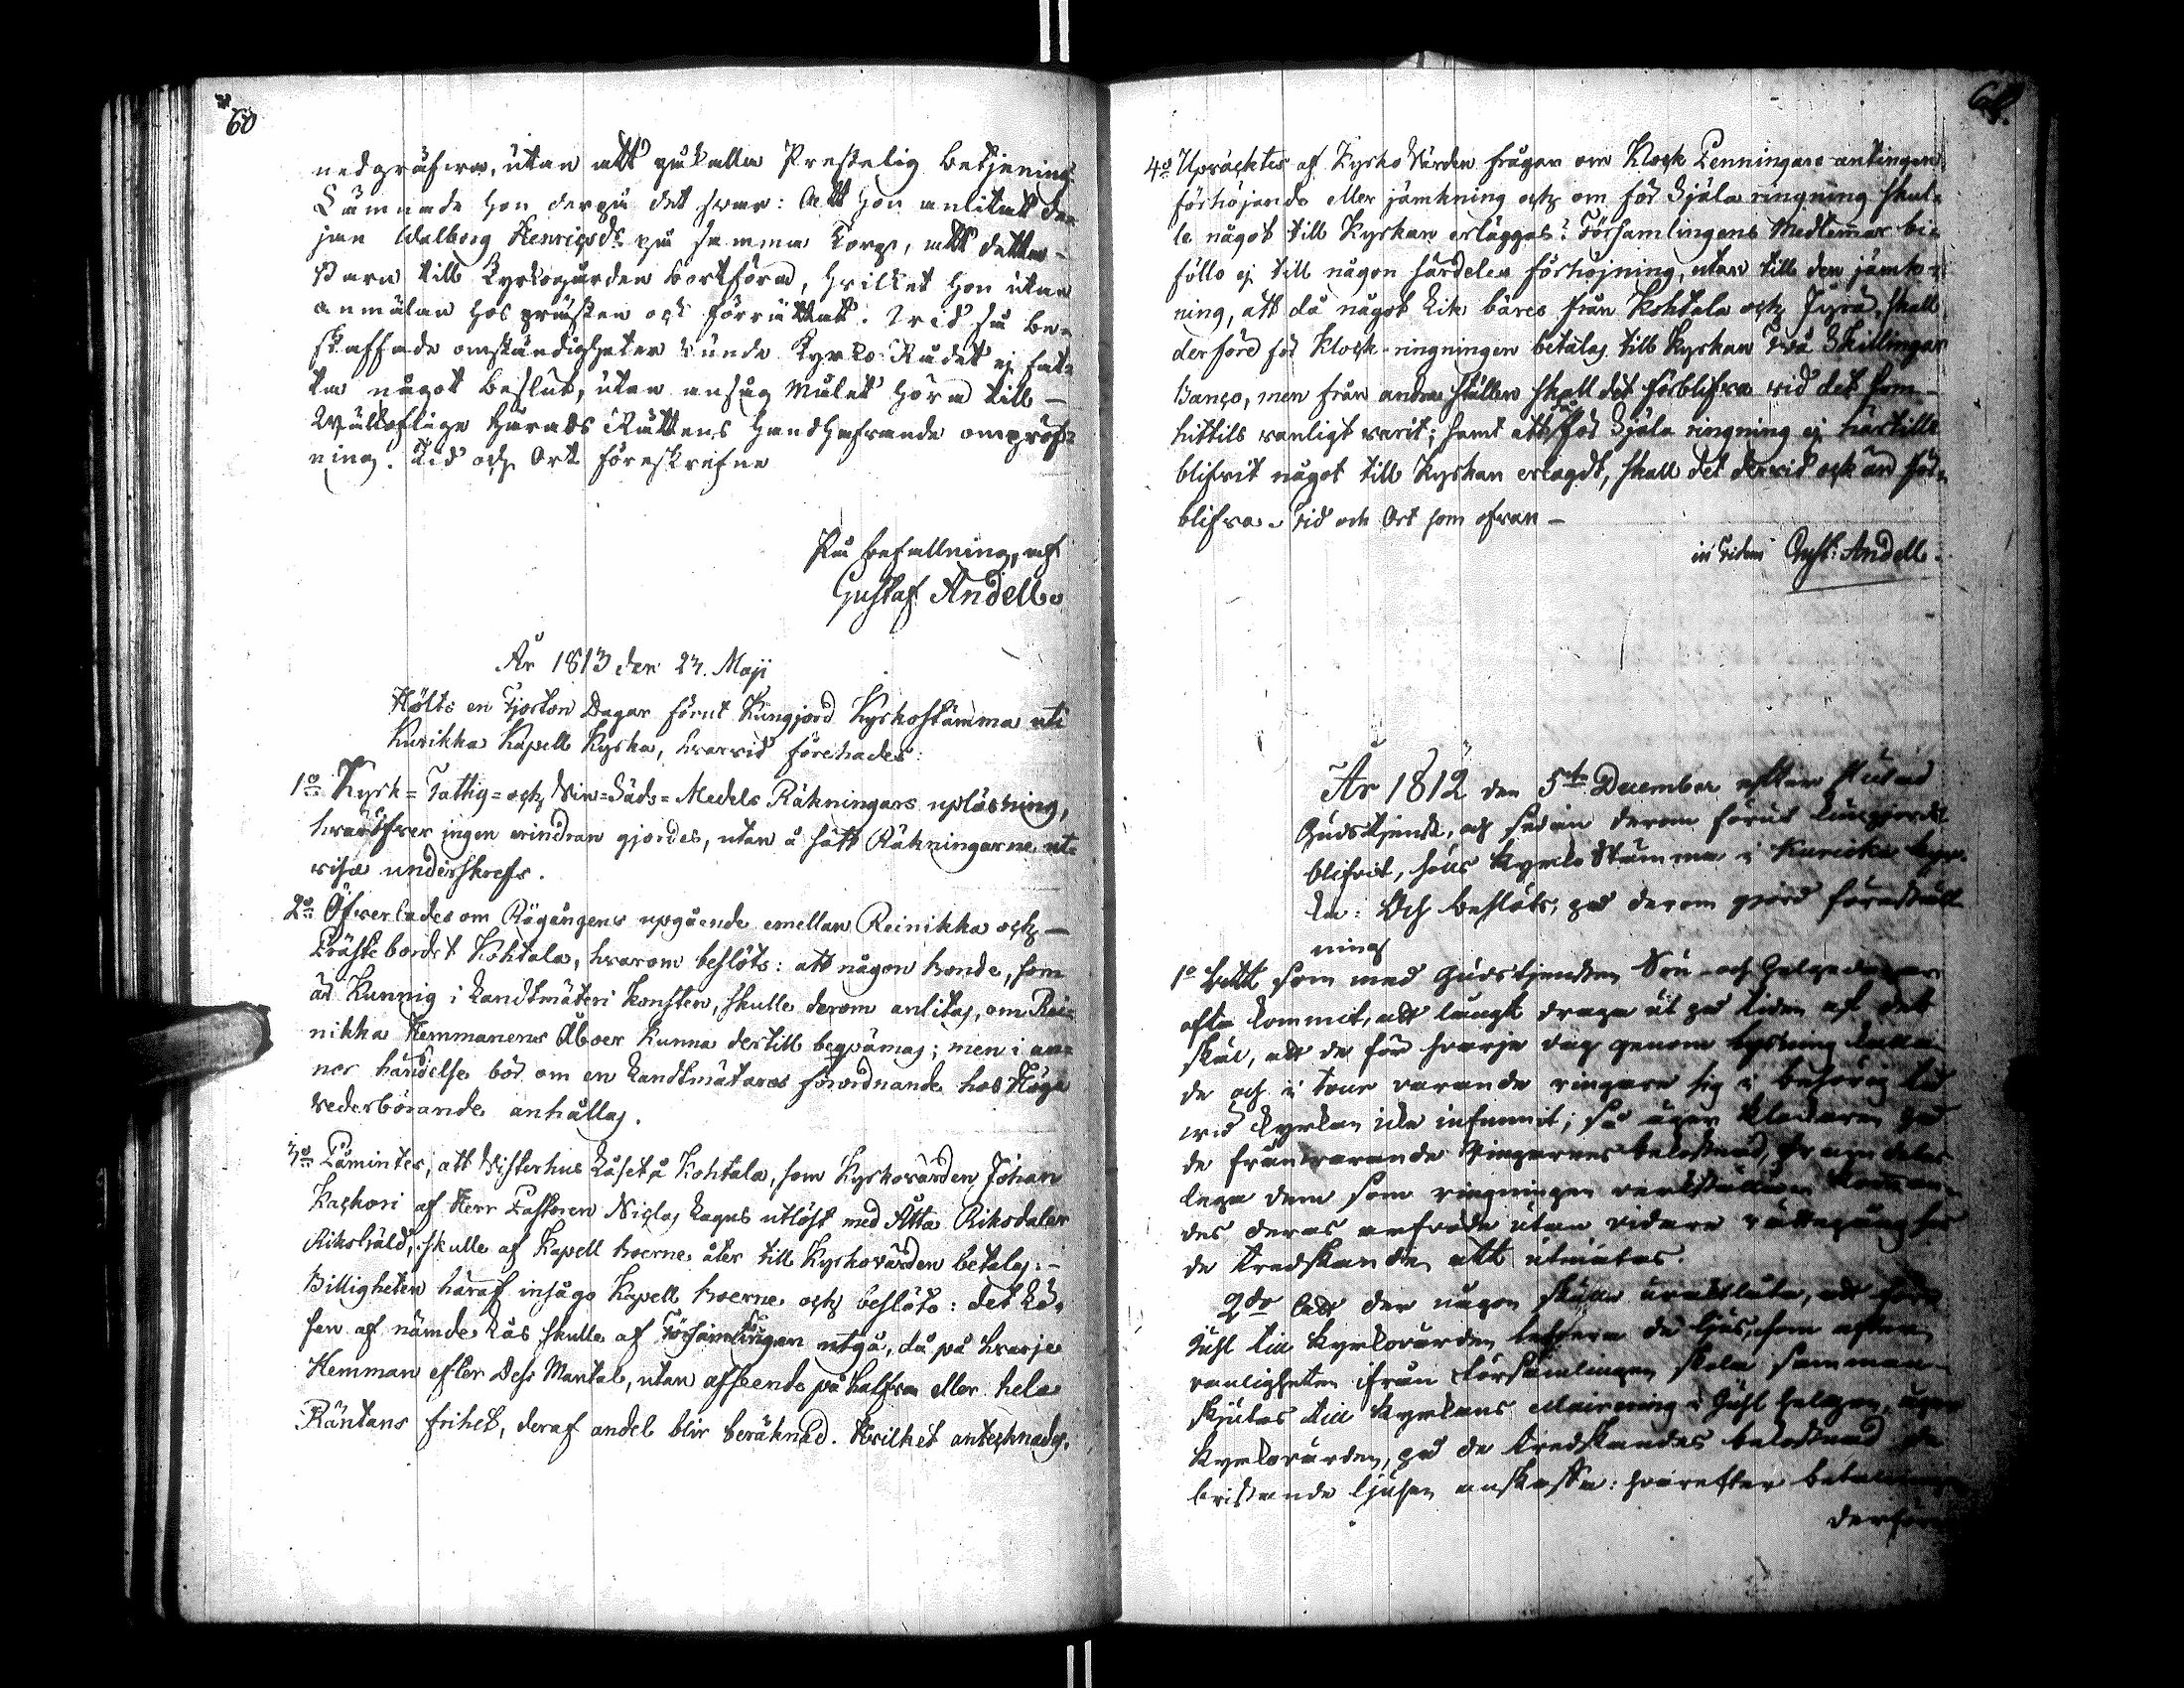 60
nedgräfwa, utan att påkalla Prestelig betjening
Lämnade hon derpå det svar: Att hon anlitat De-
jan Walborg Henricsdr på samma Torp, att detta -
barn till Kyrkogården bortföra, hvilket hon utan
anmälan hos prästen ock förrättat. Wid så be-
skaffade omständigheter kunde Kyrko-Rådet ej fat-
ta något beslut, utan ansåg målet höra till -
Wällofliga Härads Rättens handhafvande ompröf-
ning. Tid och Ort föreskrefne
På befallning, af
Gustaf Andell.
År 1813 den 23. Maji
Hölts en Fjorton Dagar förut Kungjord Kyrkostämma uti
Kurikka Kapell Kyrka, hvarvid förehades:
1:o Kyrk= Fattig= och Vin=Säds= Medels Räkningars upläsning,
hvaröfver ingen erindran gjordes, utan å sått Räkningarne ut-
visa underskrefs.
2:o Öfverlades om Rågångens upgående emellan Reinikka och -
Präste bordet Kohtala, hvarom beslöts: att någon bonde, som
är Kunnig i Landtmäteri konsten, skulle derom anlitas, om Rei-
nikka Hemmanens Åboer kunna dertill beqvämas; men i an-
nor händelse bör om en Landtmätares förordnande hos Höga
Vederbörande anhållas.
3:o Påmintes, att Visterhus Låset å Kohtala, som Kyrkovärden Johan
Kackori af Herr Pastoren Niclas Lagus utlöst med Åtta Riksdaler
Riksgäld, skulle af Kapell boerne åter till Kyrkovärden betalas. -
Billigheten häraf insågo Kapell boerne och beslöto: det Lö-
sen af nämde Lås skulle af Församlingen utgå, då på hvarje
Hemman efter Dess Mantal, utan afseende på halfva eller hela
Räntans frihet, deraf andel blir beräknad. Hvilket antecknades.
61.
4:o Upväcktes af Kyrko Värden frågan om Klock Penningars antingen
förhöjande eller jämkning och om för Själa ringning skul-
le något till Kyrkan erläggas? Församlingens Medlemmar bi-
föllo ej till någon särdeles förhöjning, utan till den jämk-
ning, att då något Lik bäres från Kohtala och Jyrä, skall
derföre för Klock-ringningen betalas till Kyrkan två Skillingar
Banco, men från andra ställen skall det förblifva vid det som -
hittils vanligt varit; samt att då för Själa ringning ej härtills
blifvit något till Kyrkan erlagdt, skall det dervid ock än för-
blifva. Tid och Ort som ofvan -
in fidem Gust: Andell.
År 1812 den 5:te December efter slutad
Gudstjenst, och sedan derom förut kungjordt
blifvit, hölls Kyrko Stämma i Kurikka Kyr-
ka: Och beslöts, på derom gjord föreställ-
ning
1:o Att som med Gudstjensten Sön- och Helgedagar
ofta kommit, att långt draga ut på tiden af det
skäl, att de för hvarje dag genom lysning kalla-
de och i tour varande ringare sig i behörig tid
wid Kyrkan icke infunnit; så äger Klockaren på
de frånvarande Ringarnes bekostnad,
lega dem som ringningen verkställa
des deras arfvode utan vidare rättegång hos
de tredskande att utmätas.
2:do Att der någon skulle underlåta, att före
Juhl till Kyrkovärden lefverera de ljus, som efter
vanligheten ifrån Församlingen skola samman-
skjutas till Kyrkans i Juhl helgen, äger
Kyrkovärden, på de tredskandes bekostnad de
bristande ljusen anskaffa: hvarefter betalningen
derföre